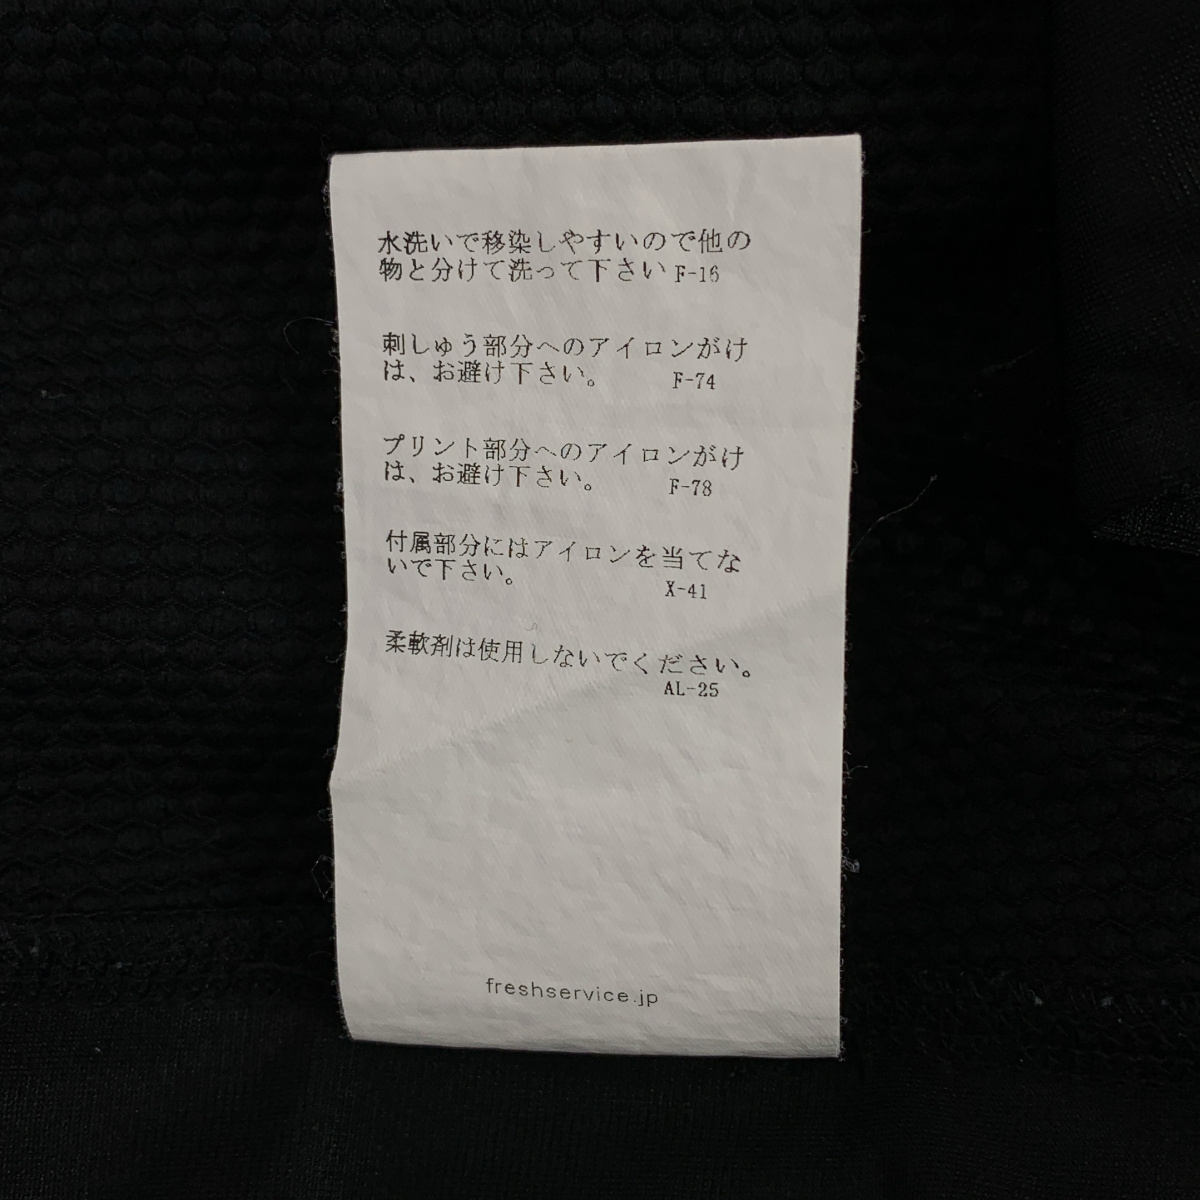 水洗いで移染しやすいので他の
物と分けて洗って下さい F-16
刺しゅう部分へのアイロンがけ
は、お避け下さい。 F-74
プリント部分へのアイロンがけ
は、お避け下さい。 F-78
付属部分にはアイロンを当てな
いで下さい。 X-41
柔軟剤は使用しないでください。
AL-25
freshservice.jp